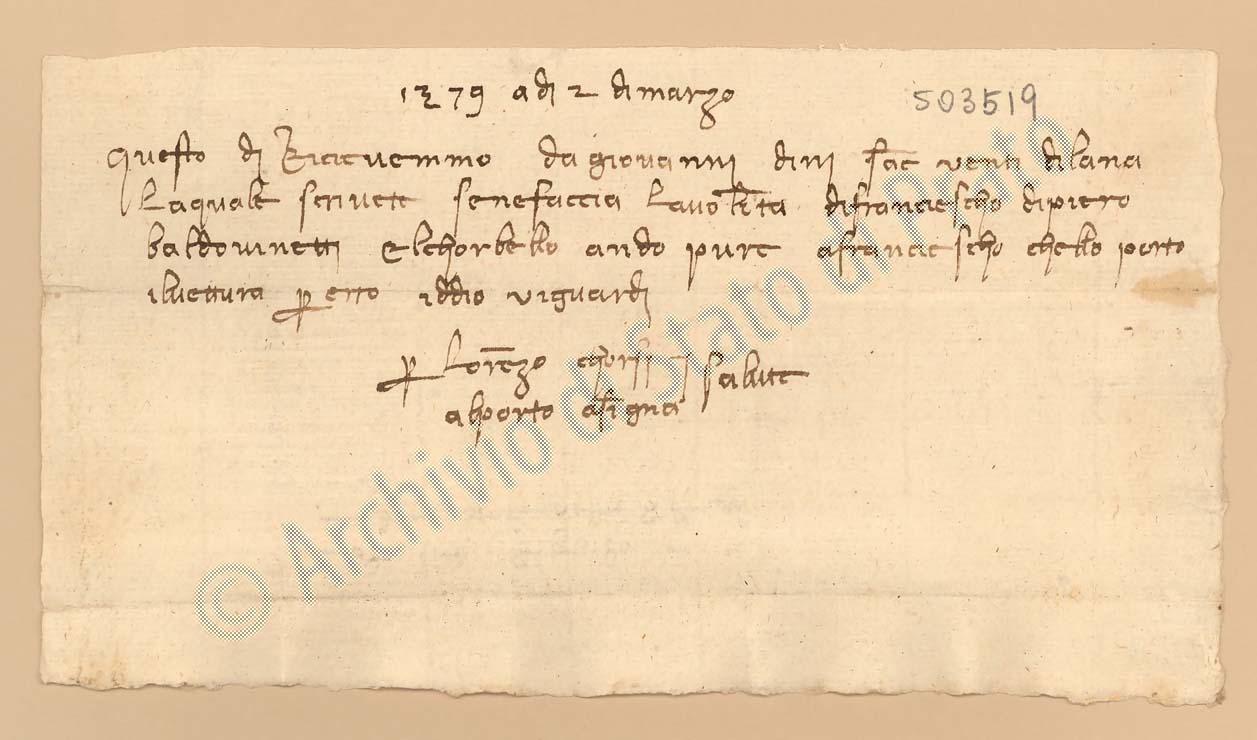 1379 a di 2 di marzo
503519
Questo di Ricievemmo da giovanni dini sac venti di lana
la quale scrivete se ne faccia la volonta di franciescho di piero
baldovinetti e l chorbello ando pure a franciescho chello porto
i luettura per erro iddio vi guardi
per Lorenzo salute
al porto a signa
© Archivio di Stato di Prato